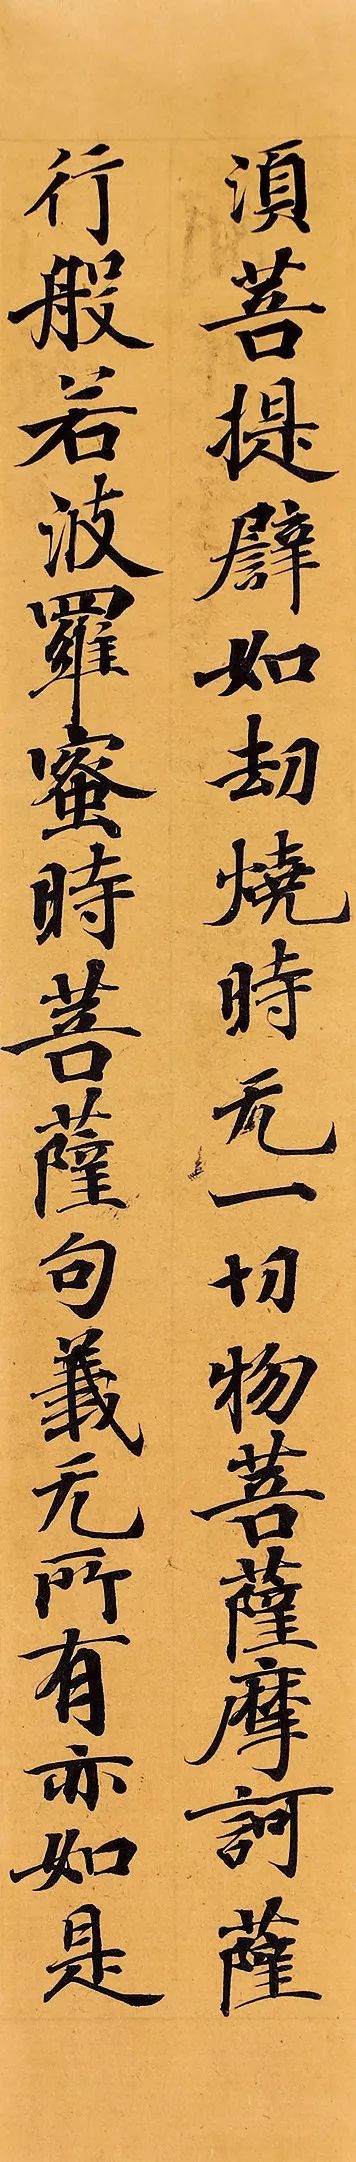 須菩提譬如劫燒時无一切物菩薩摩訶薩
行般若波羅蜜時菩薩句義无所有亦如是